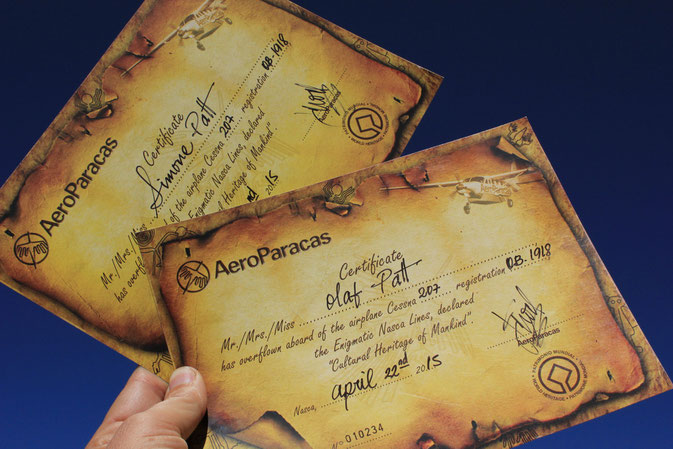 AeroParacas
Certificate
Mr./Mrs./Miss Simone Patt
of the airplane Cessna 207 registration OB.1918
Enigmatic Nasca Lines, declared
Heritage of Mankind"
nd 2015
AeroParacas
Certificate
Mr./Mrs./Miss Olaf Patt
has overflown aboard of the airplane Cessna 207 registration OB.1918
the Enigmatic Nasca Lines, declared
"Cultural Heritage of Mankind"
Nasca, april 22nd 2015
AeroParacas
PATRIMONIO MUNDIAL • WORLD HERITAGE • PATRIMOINE MONDIAL
Nº 010234